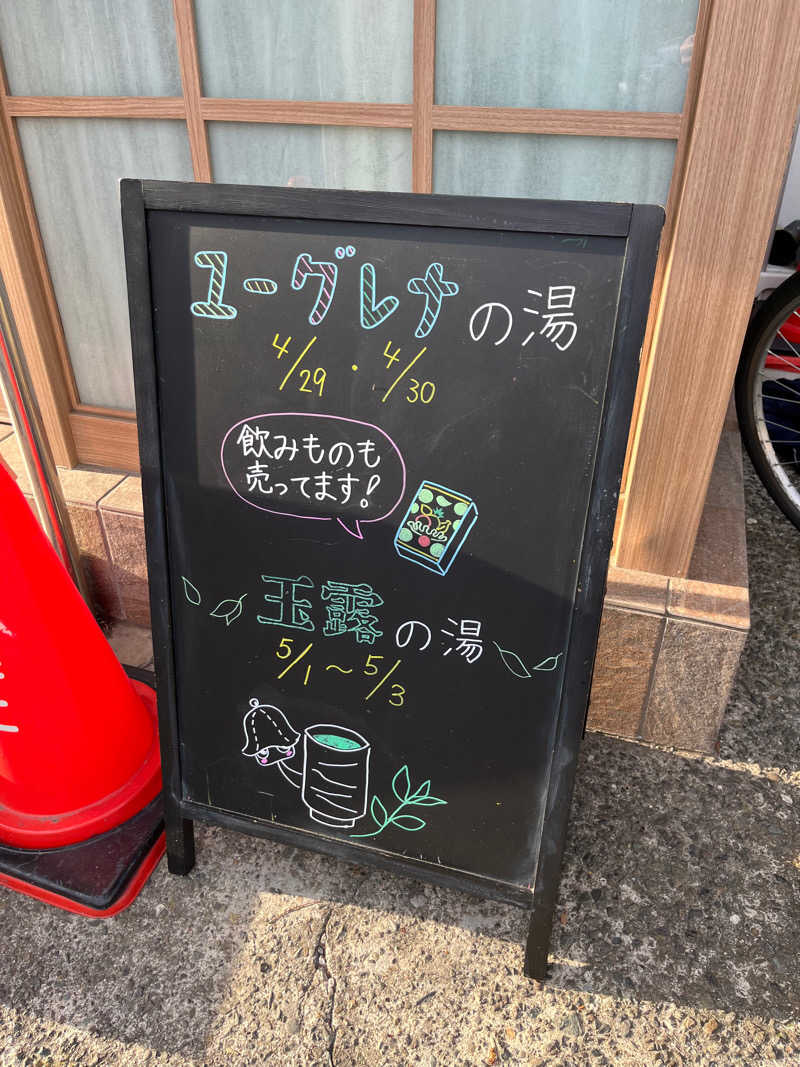 ユーグレナの湯
4/29・4/30
飲みものも
売ってます!
玉露の湯
5/1〜5/3